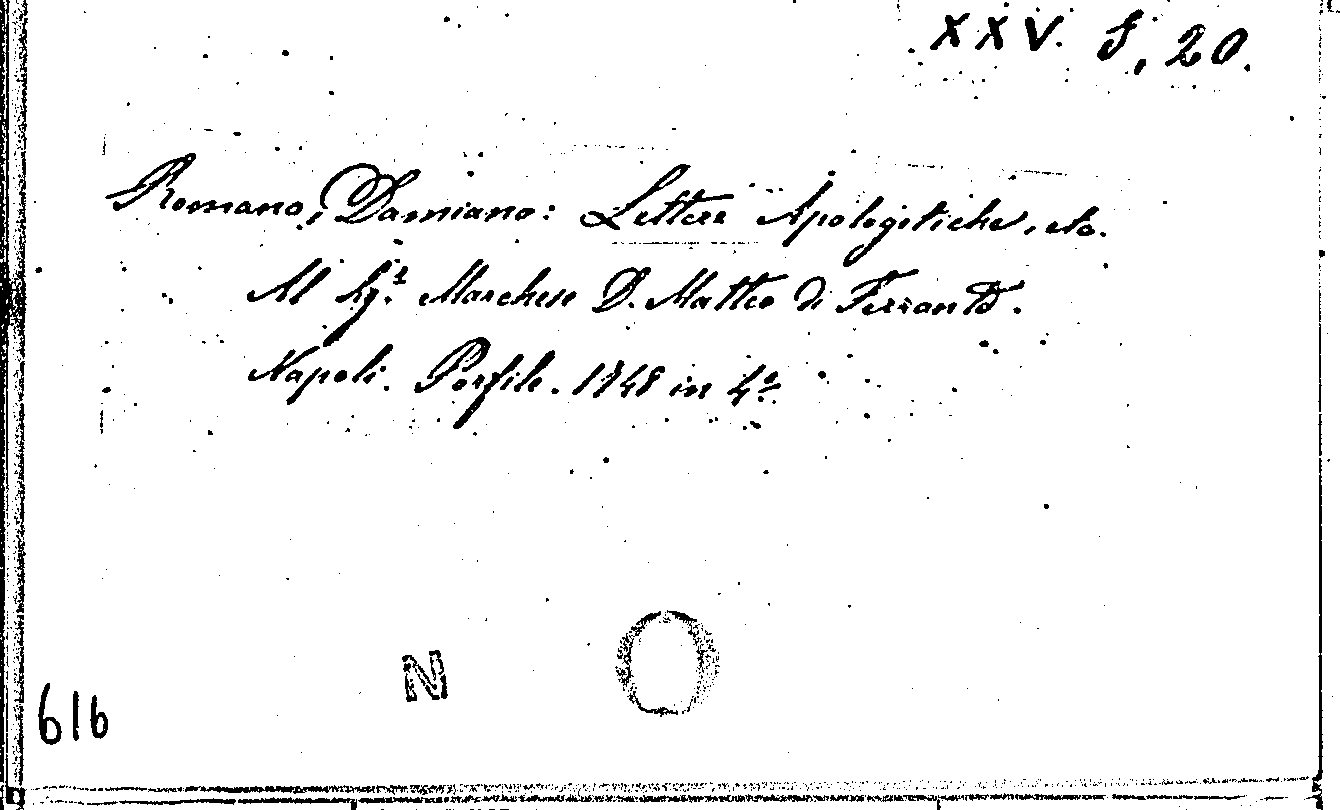 XXV. S, 20.
Romano, Damiano: Lettere Apologetiche, etc.
Al Sigr. Marchese D. Matteo di Ferrante.
Napoli. Porsile. 1848 in 4o.
N
616